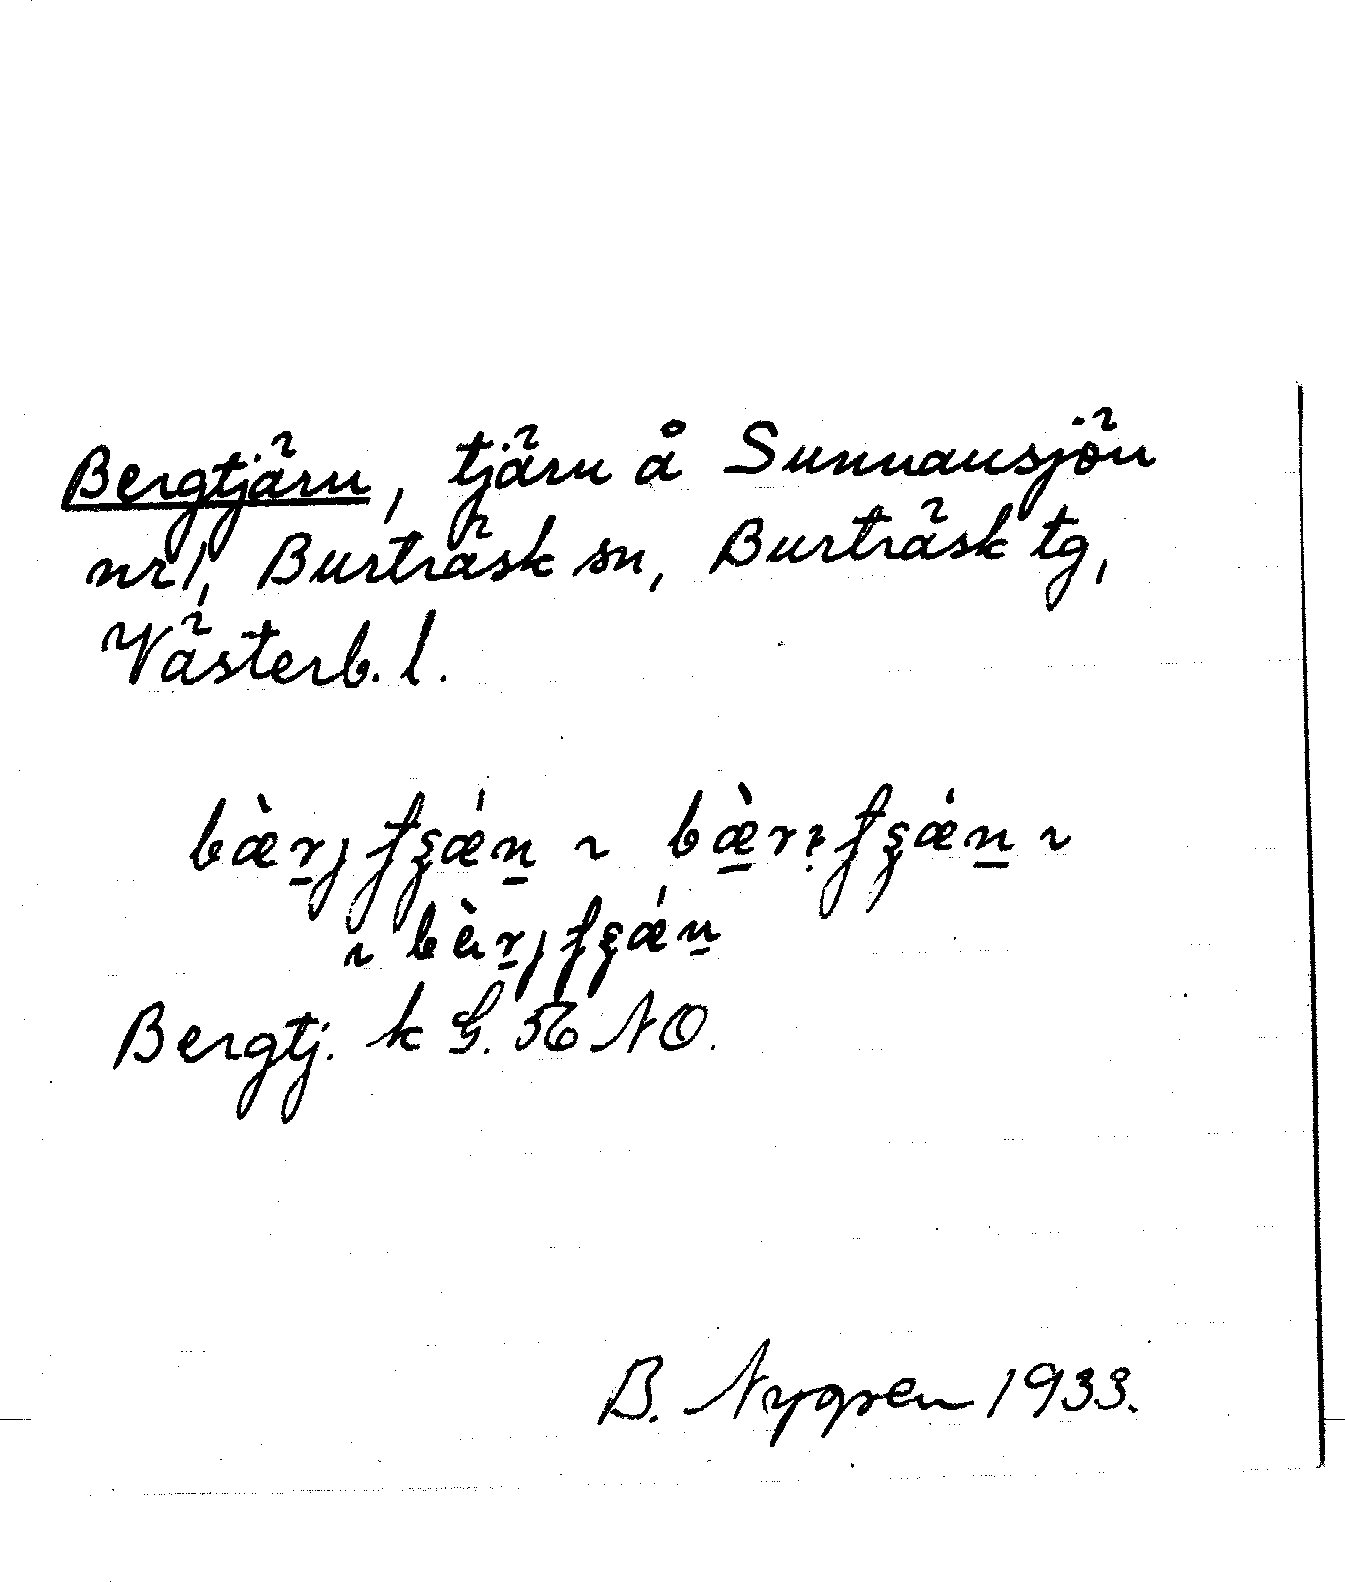 Bergtjärn, tjärn å Sunnansjön
nr 1, Burträsk sn, Burträsk tg,
Västerb. l.
bæ̀r̠j ~ bæ̀r ~
~ bàr̠j
Bergtj. k G. 56 NO.
B. Nygren 1933.